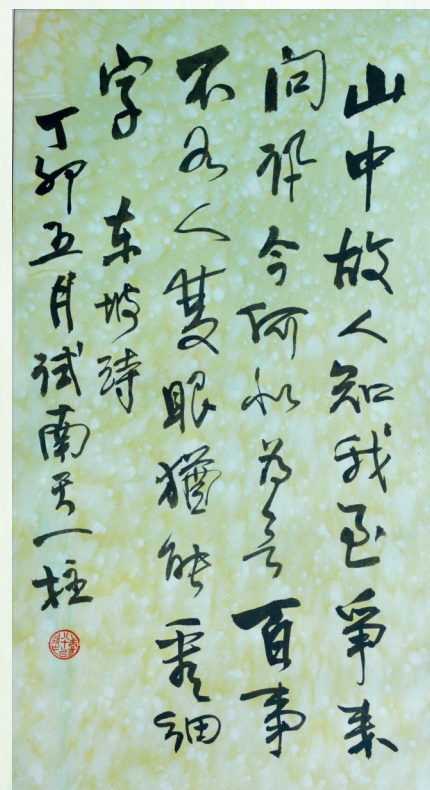 山中故人知我至爭来
问讯今何似为言百事
不如人雙眼猶能细
字 东坡诗
丁卯五月试南天一柱